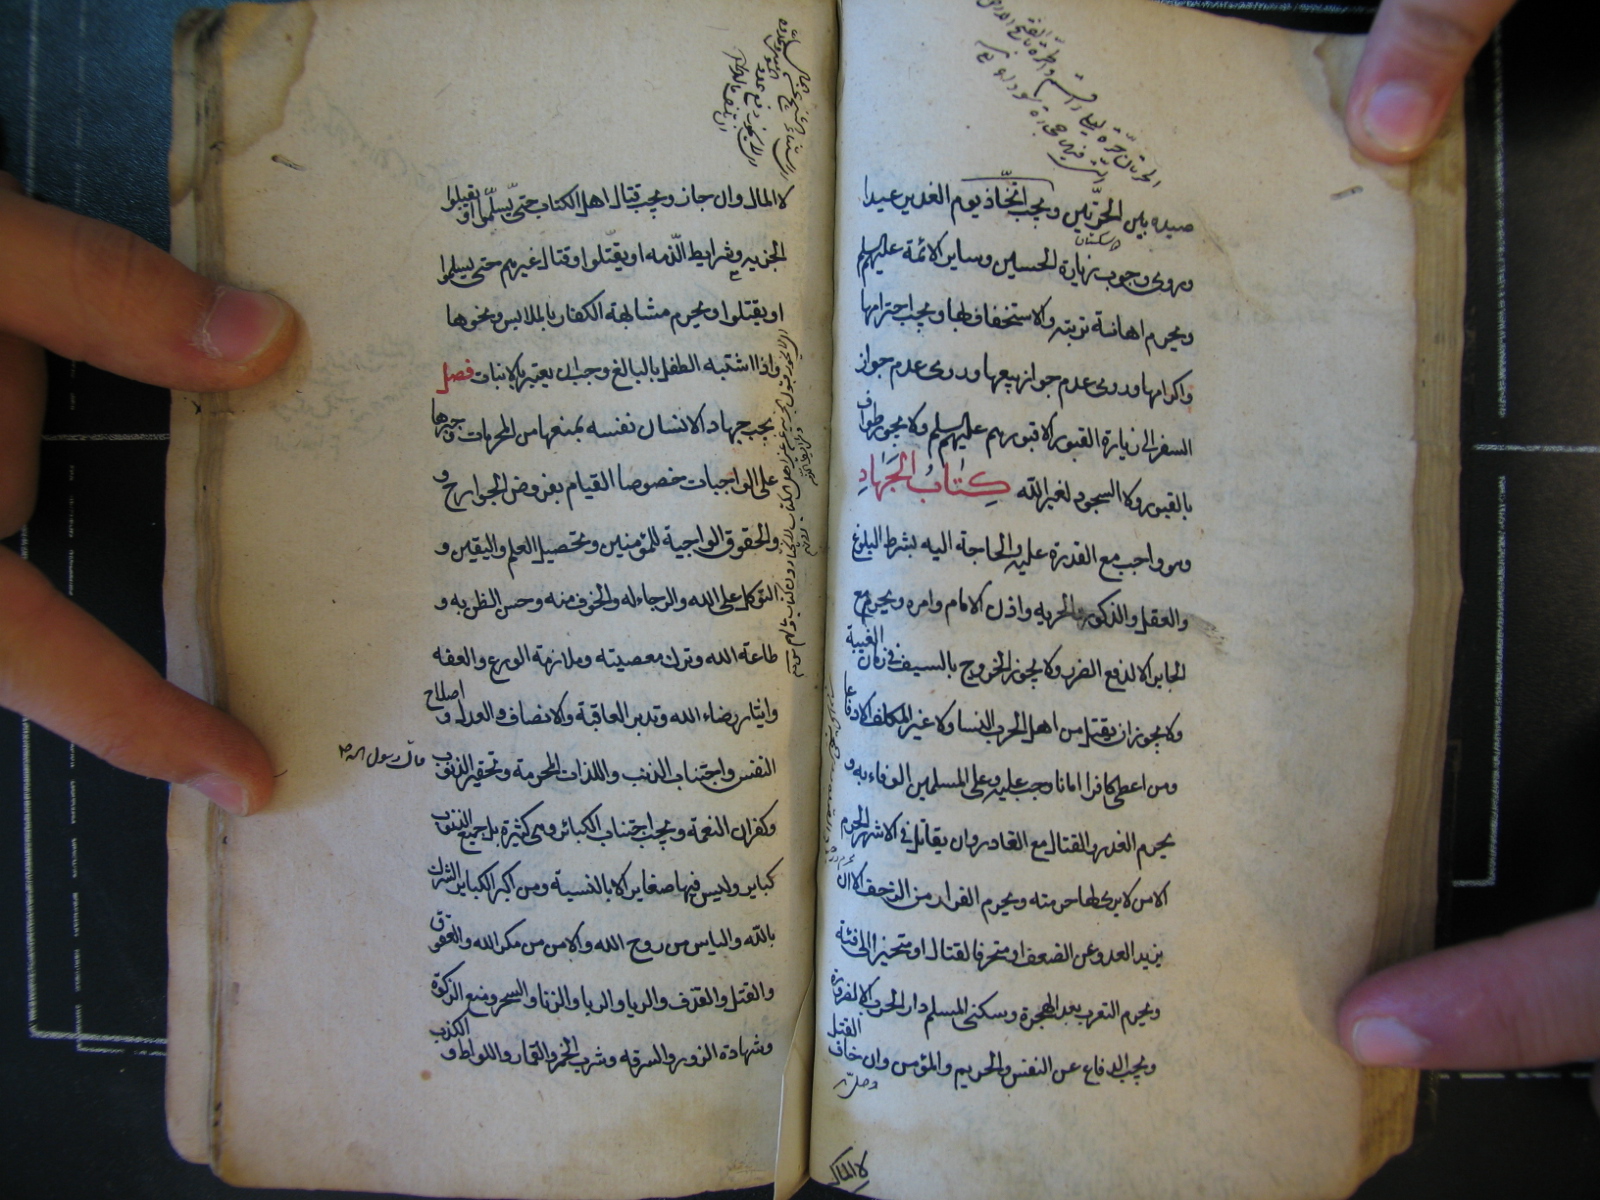 صيده بين الحرتين ويجب اتخاذ يوم الغدير عيدا
وروى وجوب زيارة الحسين وساير الائمة عليهم السلم
ويحرم اهانة تربته والاستخفاف بها ويجب احترامها
واكرامها وروى عدم جواز بيعها وروى عدم جواز
السفر الى زيارة القبور الا قبورهم عليهم السلم ولا يجوز طواف
بالقبور ولا السجود لغير الله كتاب الجهاد
وهو واجب مع القدرة عليه والحاجة اليه بشرط البلوغ
والعقل والذكورة والحريه واذن الامام وامره ويحرم مع
الجاير الا لدفع الضرر ولا يجوز الخروج بالسيف في زمان الغيبة
ولا يجوز ان يقتل من اهل الحرب النسا ولا غير المكلف الا دفاعا
ومن اعطى كافرا امانا وجب عليه وعلى المسلمين الوفاء به و
يحرم الغدر والقتال مع الغادر وان يقاتل في الاشهر الحرم
الا من لا يرى لها حرمته ويحرم الفرار من الزحف الا ان
يزيد العدو عن الضعف او متحرفا لقتال او متحيزا الى فئة
ويحرم التعرب بعد الهجرة وسكنى المسلم دار الحرب الا لضرورة
ويجب الدفاع عن النفس والحريم والمؤمن وان خاف القتل
لا المال
لا المال وان جاز ويجب قتال اهل الكتاب حتى يسلموا او يقبلوا
الجزيه وشرايط الذمه او يقتلوا وقتال غيرهم حتى يسلموا
او يقتلوا ويحرم مشابهة الكفار بالملابس ونحوها
واذا اشتبه الطفل بالبالغ وجب ان يعتبر بالانبات فصل
يجب جهاد الانسان نفسه بمنعها من المحرمات وجبرها
على الواجبات خصوصا القيام بفروض الجوارح و
والحقوق الواجبة للمؤمنين وتحصيل العلم واليقين و
التوكل على الله والرجاء له والخوف منه وحسن الظن به و
طاعة الله وترك معصيته وملازمة الورع والعفه
وايثار رضاء الله وتدبر العاقبة والانصاف والعدل و اصلاح
النفس واجتناب الذنب واللذات المحرمة وتحقير الذنوب
قال رسول الله ص
وكفران النعمة ويجب اجتناب الكبائر وهي كثيرة بل جميع الذنوب
كباير وليس فيها صغاير الا بالنسبة ومن اكبر الكباير الشرك
بالله والياس من روح الله والامن من مكر الله والعقوق
والقتل والقذف والريا والربا والزنا والسحر ومنع الزكوة
وشهادة الزور والسرقه وشرب الخمر والقمار واللواط و الكذب